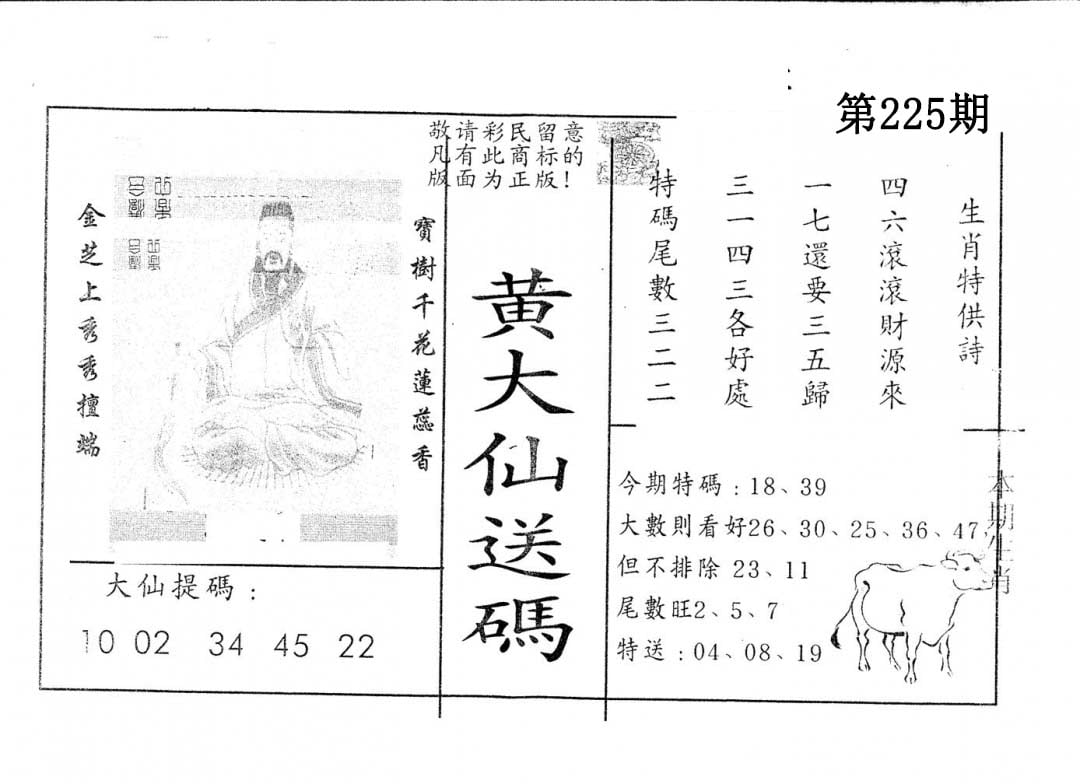 第225期
敬请彩民留意
凡有此商标的
版面为正版!
金芝上秀秀擅端
寶樹千花蓮蕊香
黄大仙送碼
大仙提碼：
10 02 34 45 22
生肖特供詩
四六滾滾財源來
一七還要三五歸
三一四三各好處
特碼尾數三二二
今期特碼：18、39
大數則看好26、30、25、36、47,
但不排除 23、11
尾數旺2、5、7
特送：04、08、19
本期生肖